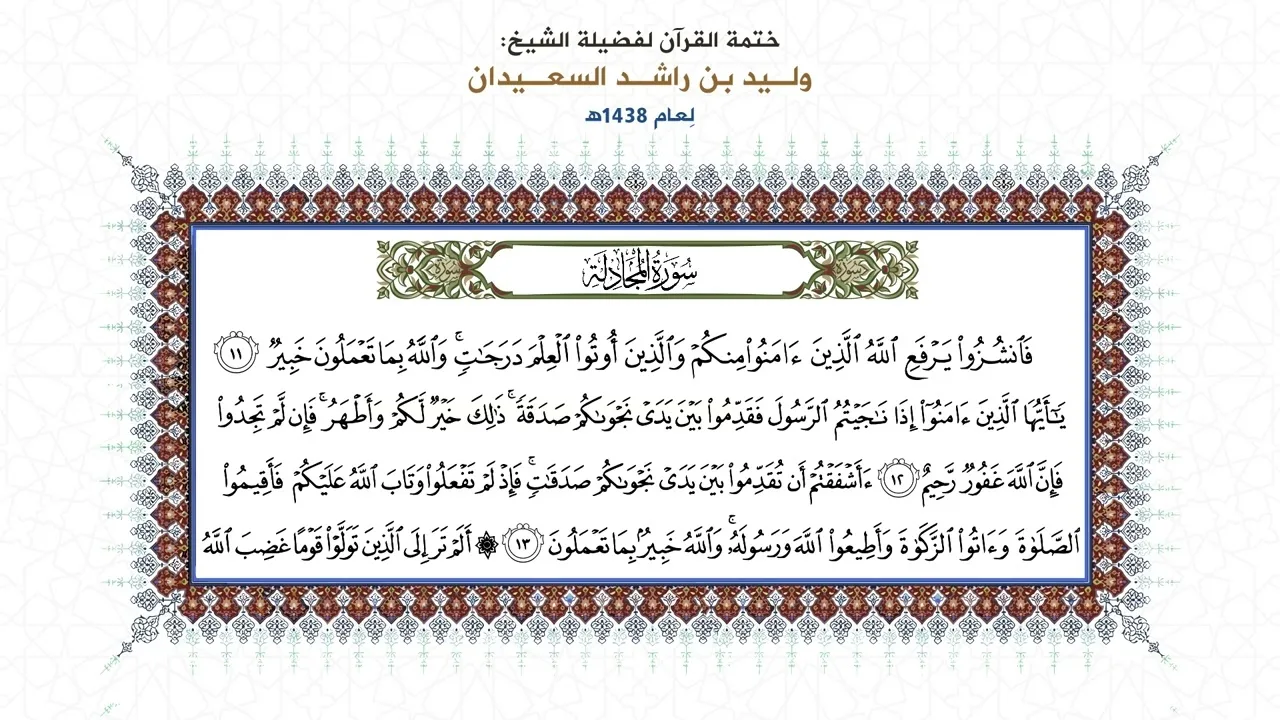 ختمة القرآن لفضيلة الشيخ:
وليد بن راشد السعيدان
لِعام 1438هـ
سُورَةُ المُجَادِلَةِ
سورة
سورة
فَٱنشُزُوا۟ يَرْفَعِ ٱللَّهُ ٱلَّذِينَ ءَامَنُوا۟ مِنكُمْ وَٱلَّذِينَ أُوتُوا۟ ٱلْعِلْمَ دَرَجَٰتٍ ۚ وَٱللَّهُ بِمَا تَعْمَلُونَ خَبِيرٌ ١١
يَٰٓأَيُّهَا ٱلَّذِينَ ءَامَنُوٓا۟ إِذَا نَٰجَيْتُمُ ٱلرَّسُولَ فَقَدِّمُوا۟ بَيْنَ يَدَىْ نَجْوَىٰكُمْ صَدَقَةً ۚ ذَٰلِكَ خَيْرٌ لَّكُمْ وَأَطْهَرُ ۚ فَإِن لَّمْ تَجِدُوا۟
فَإِنَّ ٱللَّهَ غَفُورٌ رَّحِيمٌ ١٢ ءَأَشْفَقْتُمْ أَن تُقَدِّمُوا۟ بَيْنَ يَدَىْ نَجْوَىٰكُمْ صَدَقَٰتٍ ۚ فَإِذْ لَمْ تَفْعَلُوا۟ وَتَابَ ٱللَّهُ عَلَيْكُمْ فَأَقِيمُوا۟
ٱلصَّلَوٰةَ وَءَاتُوا۟ ٱلزَّكَوٰةَ وَأَطِيعُوا۟ ٱللَّهَ وَرَسُولَهُۥ ۚ وَٱللَّهُ خَبِيرٌۢ بِمَا تَعْمَلُونَ ١٣ ۞ أَلَمْ تَرَ إِلَى ٱلَّذِينَ تَوَلَّوْا۟ قَوْمًا غَضِبَ ٱللَّهُ